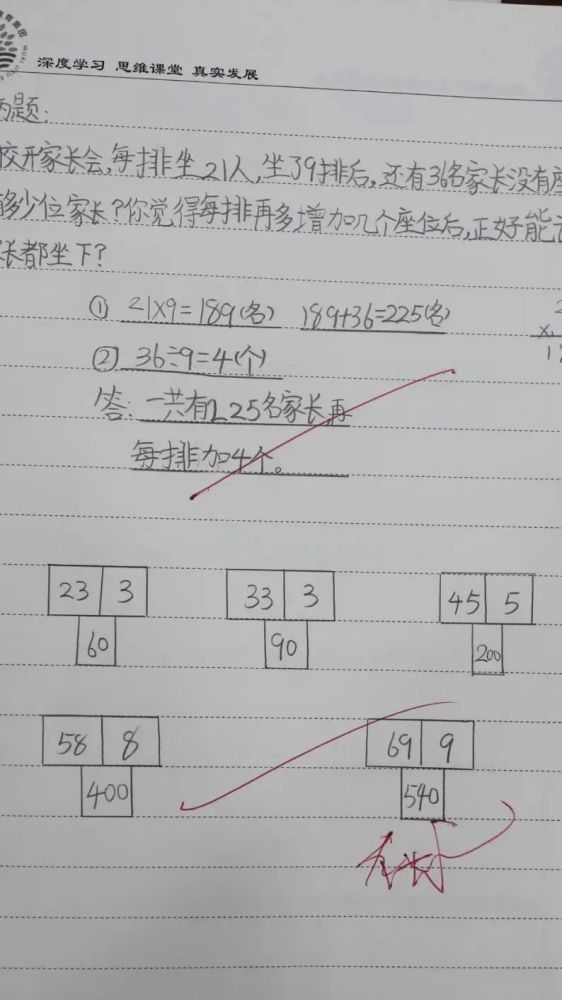 深度学习 思维课堂 真实发展
题:
校开家长会,每排坐21人,坐了9排后,还有36名家长没有座
多少位家长?你觉得每排再多增加几个座位后,正好能
长都坐下?
① 21×9=189(名) 189+36=225(名)
② 36÷9=4(个)
答:一共有225名家长再
每排加4个。
23 3 33 3 45 5
60 90 200
58 8 69 9
400 540